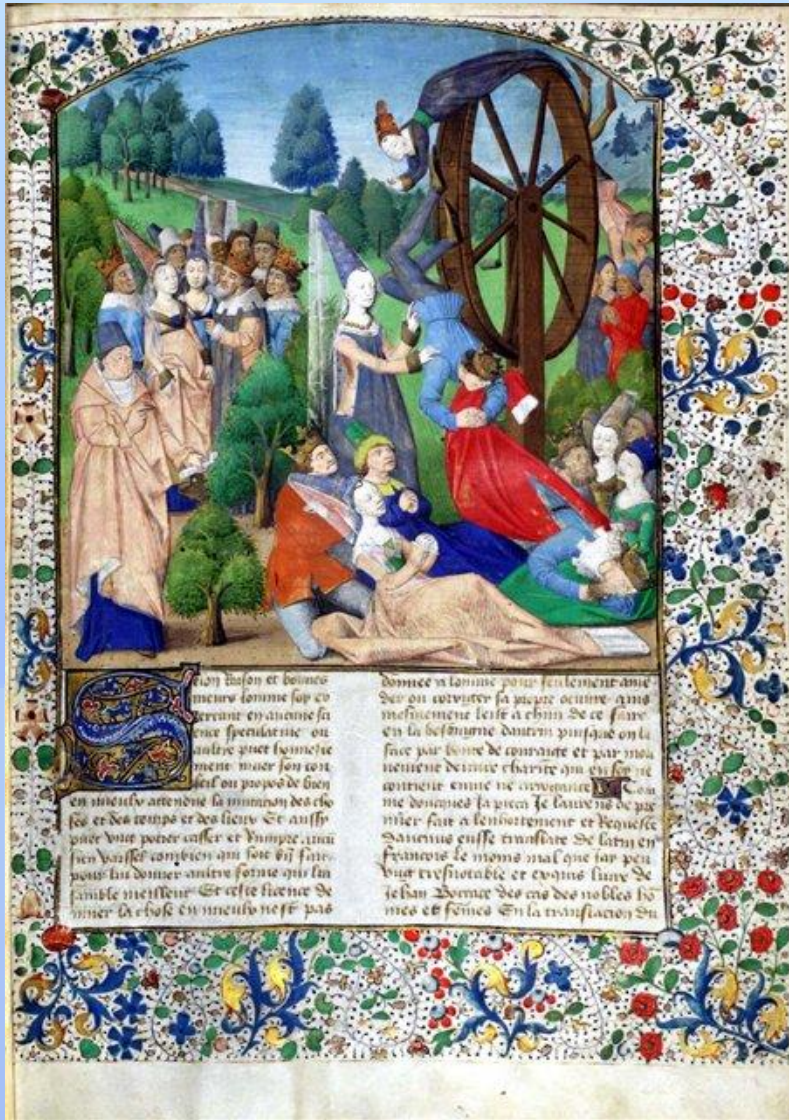 Selon raison et bonnes
meurs lomme soy ex
cercant en aucune sci
ence speculatiue ou
aultre puet honneste
ment muer son con
seil ou propos de bien
en mieulx attendue la mutacion des cho
ses et des temps et des lieux Et aussy
puet ung potier casser et Rompre aucu
sien vaissel combien qui soit bn fait
pour lui donner aultre forme qui lui
samble meilleur Et ceste licence de
muer la chose en mieulx nest pas
donnee a lomme pour seulement ame
der ou corriger sa propre oeuure
mesmement leist a chun de ce faire
en la besoingne dautrui puisque on la
face par bonte de couraige et par mou
uement de vraie charite qui en soy ne
contient enuie ne arrogance Com
me doncques Ja pieca Je laurens de pre
mier fait a lenhortement et Requeste
daucuns eusse translate de latin en
francois le moins mal que jay peu
ung tresnotable et exquis liure de
Jehan Boccace des cas des nobles ho
mes et femes En la translacion du